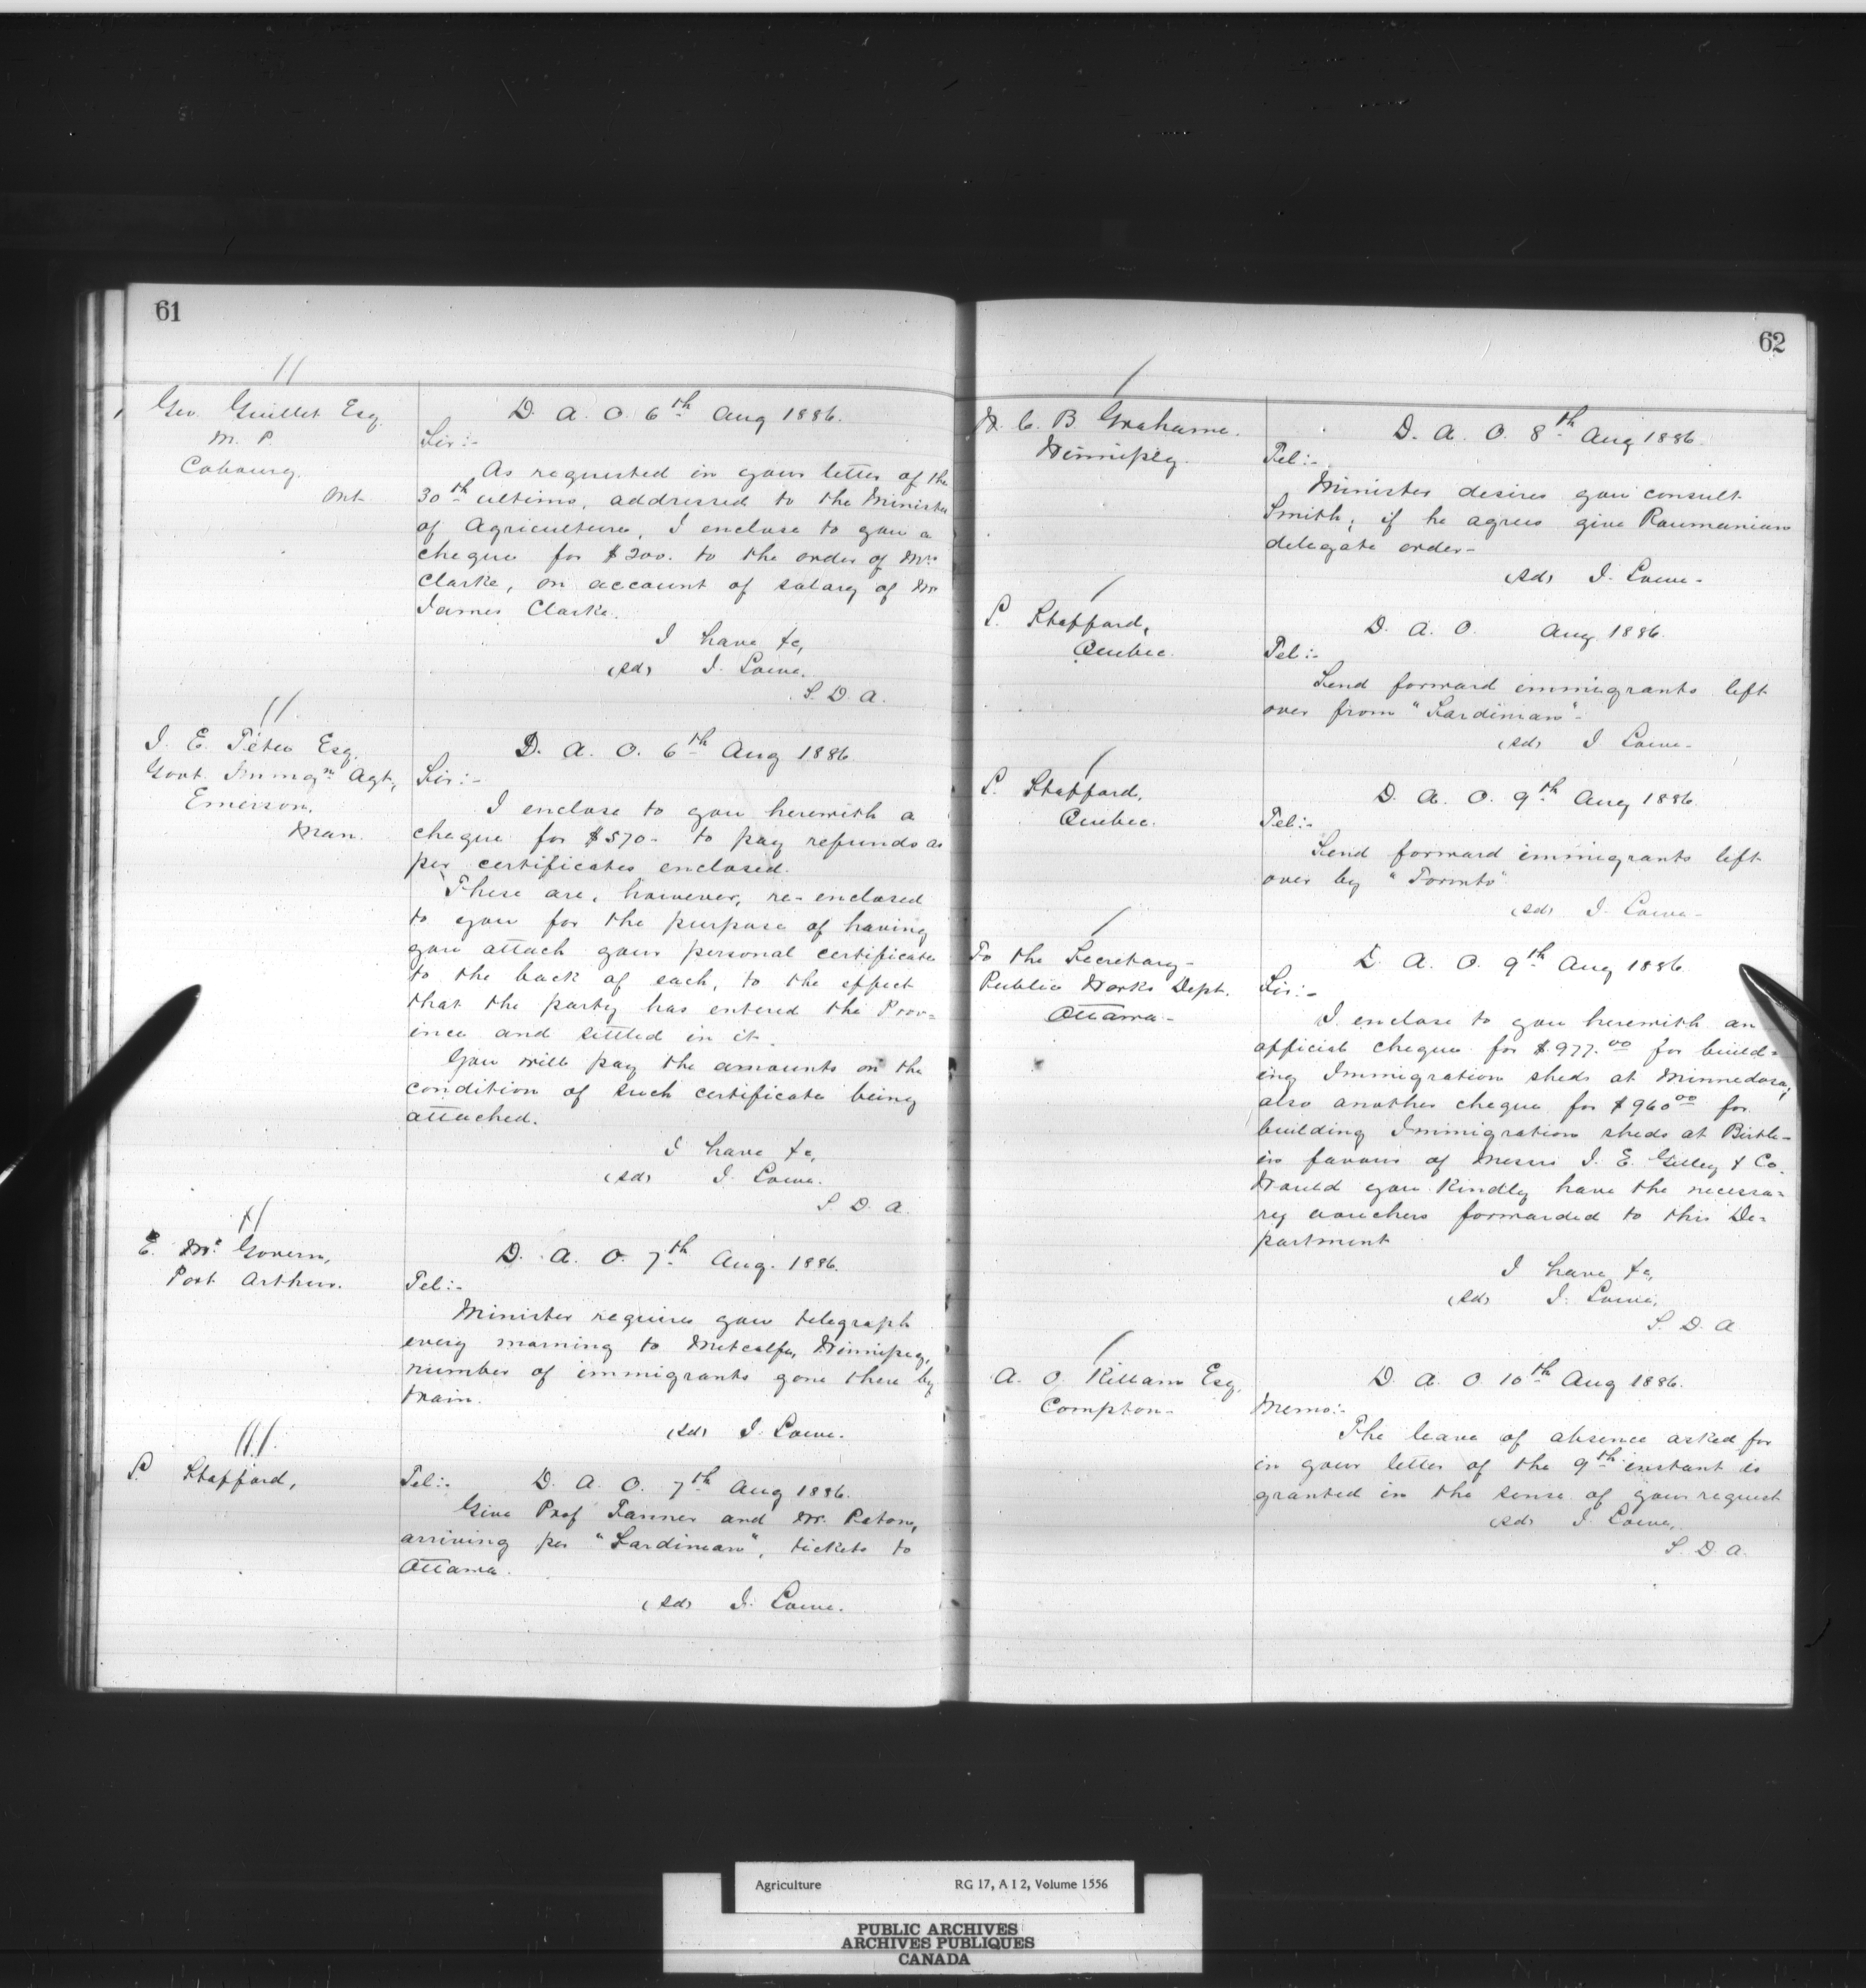 61
Geo. Guillet Esq.
M. P.
Cobourg.
Ont
D. A. O. 6th Aug 1886.
Sir:-
As requested in your letter of the
30th ultimo, addressed to the Minister
of Agriculture, I enclose to you a
cheque for $200. to the order of Mrs.
Clarke, on account of salary of Mr
James Clarke.
I have &c,
(sd) J. Lowe.
S. D. A.
J. E. Têtu Esq.
Govt. Immgn Agt,
Emerson,
Man.
D. A. O. 6th Aug 1886
Sir:-
I enclose to you herewith a
cheque for $570- to pay refunds as
per certificates enclosed.
These are, however, re-enclosed
to you for the purpose of having
you attach your personal certificate
to the back of each, to the effect
that the party has entered the Prov=
ince and settled in it.
You will pay the amounts on the
condition of such certificate being
attached.
I have &c,
(sd) J. Lowe.
S D A.
E. McGovern,
Port Arthur.
D. A. O. 7th Aug. 1886.
Tel:-
Minister requires you telegraph
every morning to Metcalfe, Winnipeg,
number of immigrants gone there by
train.
(sd) J. Lowe.
L. Stafford,
Tel:- D. A. O. 7th Aug 1886.
Give Prof Tanner and Mr. Peton,
arriving per "Sardinian", tickets to
Ottawa.
(sd) J. Lowe.
62
W. C. B Grahame.
Winnipeg.
D. A. O. 8th Aug 1886
Tel:-
Minister desires you consult
Smith; if he agrees give Roumanian
delegate order-
(sd) J. Lowe-
L. Stafford,
Quebec.
D. A. O. Aug. 1886.
Tel:-
Send forward immigrants left
over from "Sardinian"-
(sd) J Lowe-
L. Stafford,
Quebec.
D. A. O. 9th Aug 1886.
Tel:-
Send forward immigrants left
over by "Toronto"
(sd) J. Lowe-
To the Secretary-
Public Works Dept.
Ottawa-
D. A. O. 9th Aug 1886.
Sir:-
I enclose to you herewith an
official cheque for $977.00 for build=
ing Immigration sheds at Minnedosa,
also another cheque for $960 00 for
building Immigration sheds at Birtle-
in favour of Messrs J. E. Gilley & Co.
Would you kindly have the necessa=
ry vouchers forwarded to this De=
partment
I have &c,
(sd) J. Lowe,
S. D. A
A. O. Killam Esq,
Compton-
D. A. O 10th Aug 1886.
Memo:-
The leave of absence asked for
in your letter of the 9th instant is
granted in the sense of your request
(sd) J. Lowe,
S. D. A.
Agriculture RG 17, A I 2, Volume 1556
PUBLIC ARCHIVES
ARCHIVES PUBLIQUES
CANADA